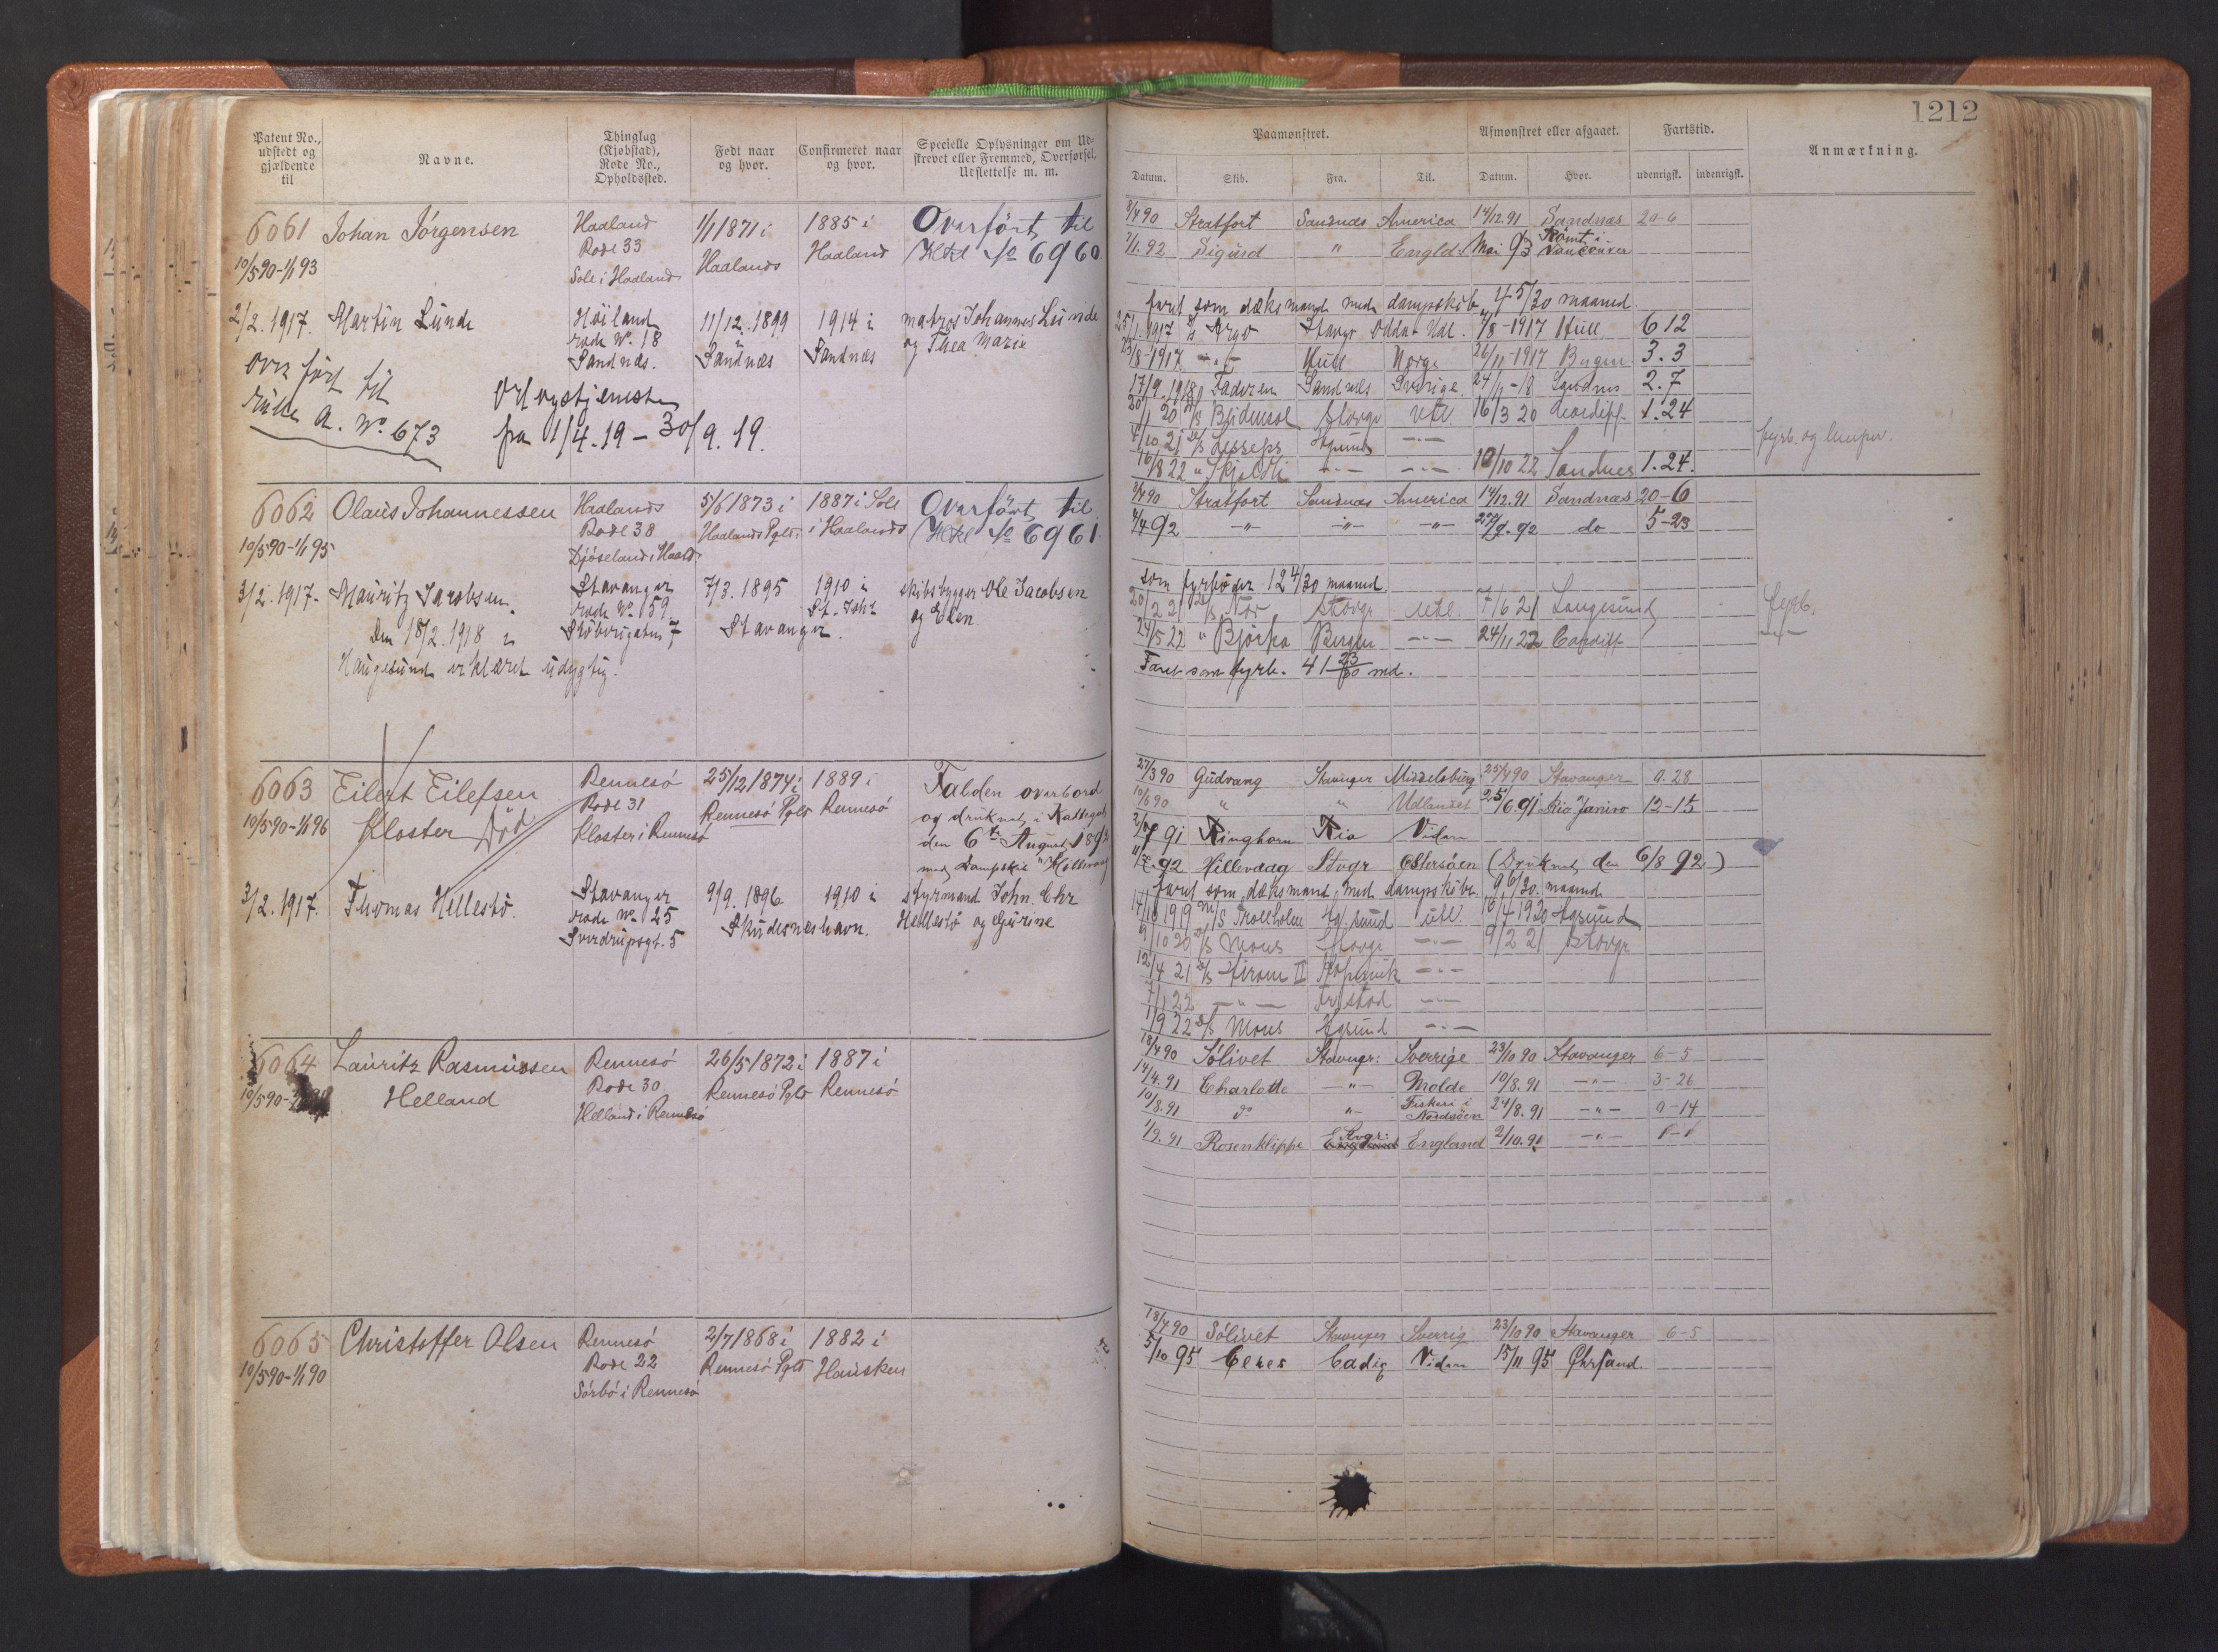 1212
Patent No., udstedt og gjældende til
Navne.
Thinglag (Kjøbstad), Rode No., Opholdssted.
Født naar og hvor.
Confirmeret naar og hvor.
Specielle Oplysninger om Udskrevet eller Fremmed, Overførsel, Udslettelse m. m.
Paamønstret.
Afmønstret eller afgaaet.
Fartstid.
Anmærkning.
Datum. Skib. Fra. Til. Datum. Hvor. udenrigsk. indenrigsk.
6061 Johan Jörgensen Haaland 1/1 1871 i 1885 i Overført til
10/5 90-1/1 93 Rode 33 Haalands Haaland No 6960
Sole i Haaland
2/2. 1917. Martin Lunde Höiland 11/12. 1899 1914 i matros Johannes Lunde
rode No. 18 Sandnæs Sandnæs og Thea Marie
Sandnæs.
overført til
rulle A. No. 673
fra 1/4.19 - 30/9.19.
8/4 90 Stratfort Sandnæs America 14/12.91 Sandnæs 20-6
7/1.92 Sigurd " Engld. Mai 93 Rømt i Vancouver
faret som dæksmand med dampskib 4 5/30 maaned
25/1.1917 Argo 7/8-1917 Hull 6 12
23/8-1917 -"- Hull Norge 26/11-1917 3.3
17/9.1918 Sandnæs Sverige 2.7
16/3 20 1.24
16/8 22 " 10/10 22 Sandnes 1.24.
fyrb. og lemper.
6062 Olaus Johannessen Haalands 5/6 1873 i 1887 i Sole Overført til
10/5 90-1/1 95 Rode 38 Haalands Pgld. i Haalands No 6961
3/2. 1917. Mauritz Jacobsen. Stavanger 7/3. 1895 1910 i skibsbygger Ole Jacobsen
rode No. 159 Stavanger. St. Joh. og Elen
Den 18/2. 1918 i
Haugesund erklæret udygtig.
8/4 90 Stratfort Sandnæs America 14/12.91 Sandnæs 20-6
4/4 92 -"- -"- -"- do 5-23
som fyrbøder 12 4/30 maaned
20/2 21 Stavgr utl. 7/6 21 Langesund fyrb.
24/5 22 " Bergen -"- 24/11 22 Cardiff -"-
Faret som fyrb. 41 23/30 md.
6063 Eilert Eilefsen Rennesö 25/12 1874 i 1889 i Falden overbord
10/5 90-1/1 96 Kloster Död Rode 31 Rennesö Pgld Rennesö og druknet i Kattegat
Kloster i Rennesö den 6te August 1892
med Dampskib "Hillevaag
3/2. 1917. Thomas Hellestö. Stavanger 9/9. 1896 1910 i styrmand John. Chr
rode No. 125 Skudesneshavn. Hellestö og Gurine
Sverdrupsgt. 5
27/3 90 Gudvang Stavanger Middelsburg 25/4 90 Stavanger 0.28
10/6 90 " " Udlandet 25/6.91 Rio Janiro 12-15
7 91 Kinghorn Rio Viden
92 Hillevaag Stvgr Østersöen (Druknet den 6/8 92)
faret som dæksmand med dampskibe 9 6/30 maaned
14/10 1919 Trolleholm Hg.sund utl. 10/4 1920 Hgsund
9/10 20 D/S Mons Stavgr -"- 9/2 21 Stavgr
12/4 21 D/S Hirom II Kopervik -"-
7/1 22 -"- Fr.stad -"-
1/9 22 D/S Mons Hgsund -"-
6064 Lauritz Rasmussen Rennesö 26/5 1872 i 1887 i
10/5 90- Helland Rode 30 Rennesö Pgld Rennesö
Helland i Rennesö
18/4 90 Sölivet Stavngr: Sverrige 23/10 90 Stavanger 6-5
14/4.91 Charlotte -"- Molde 10/8.91 -"- 3-26
10/8.91 do -"- Fiskeri i Nordsöen 24/8.91 -"- 0-14
1/9.91 Rosenklippe Stvgr: England 2/10.91 -"-
6065 Christoffer Olsen Rennesö 2/7 1868 i 1882 i
10/5 90-1/1 90 Rode 22 Rennesö Pgld Hausken
Sörbö i Rennesö
18/4 90 Sölivet Stavanger Sverrig 23/10 90 Stavanger 6-5
5/10 95 Ceres Cadiz Viden 15/11 95 Chrsand